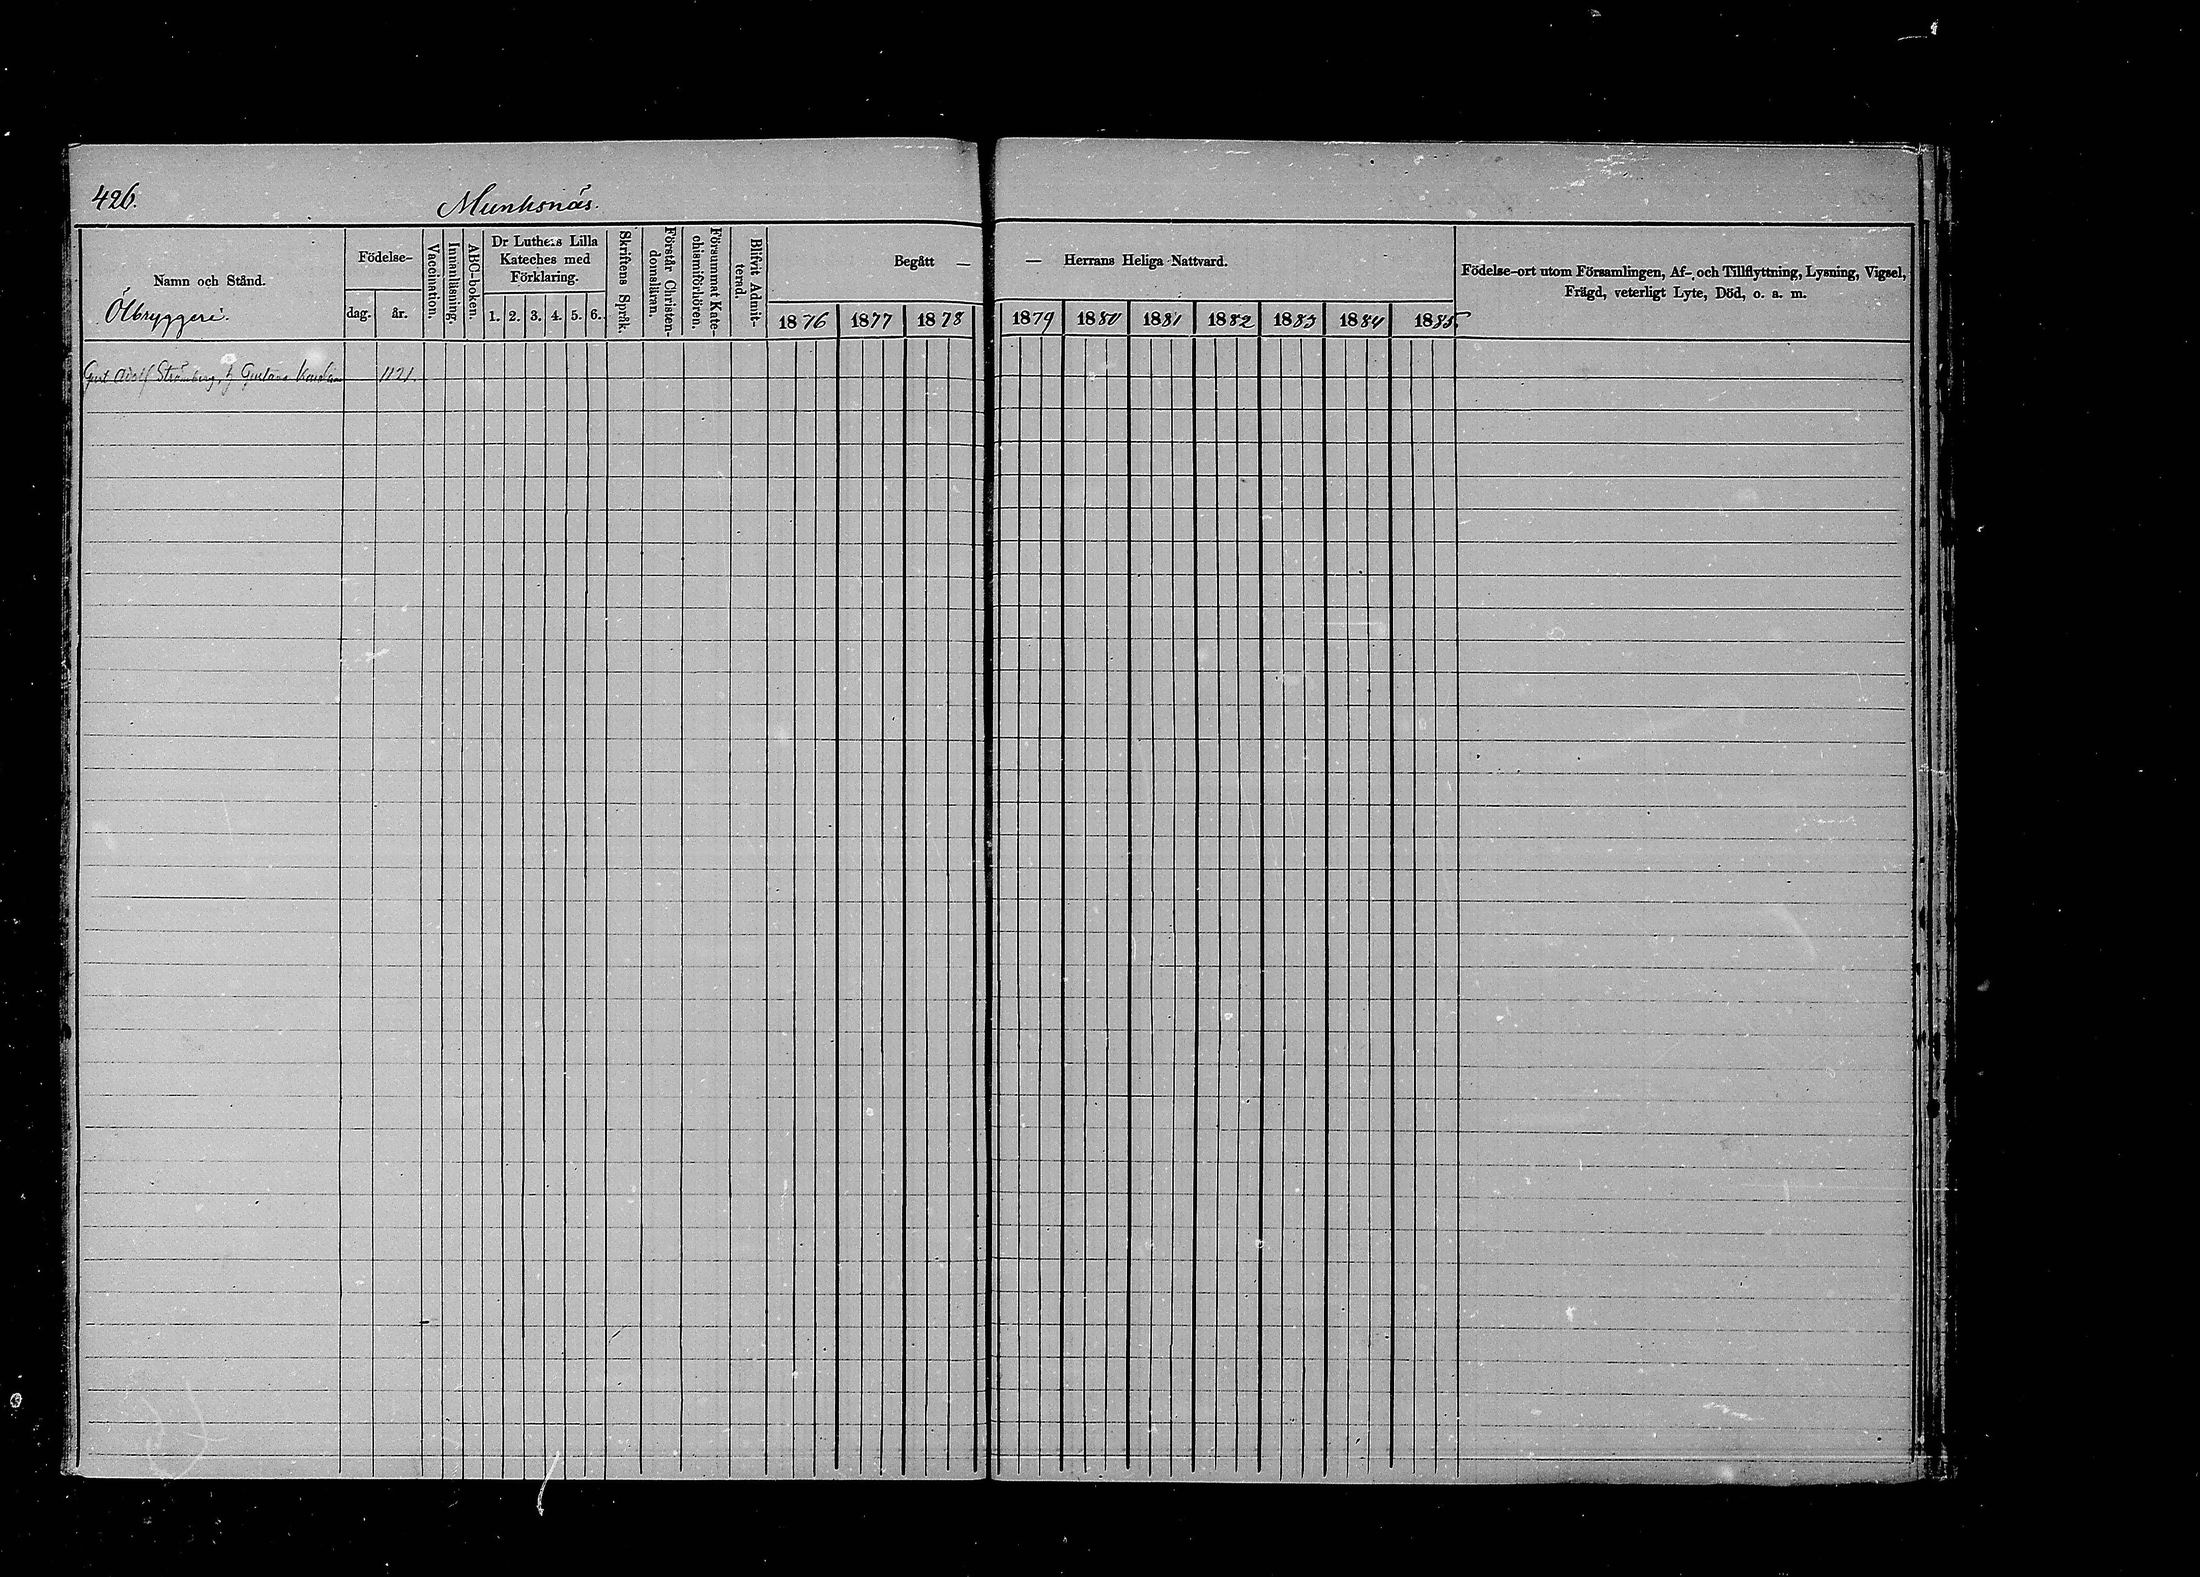 426.
Munksnäs.
Namn och Stånd.
Ölbryggeri.
Födelse-
dag.
år.
Vaccination.
Innanläsning.
ABC-boken.
Dr Luthers Lilla
Kateches med
Förklaring.
1. 2. 3. 4. 5. 6.
Skriftens Språk.
Förstår Christen-
domsläran.
Försummat Kate-
chismiförhören.
Blifvit Admit-
terad.
Begått —
1876 1877 1878
— Herrans Heliga Nattvard.
1879 1880 1881 1882 1883 1884 1885
Födelse-ort utom Församlingen, Af- och Tillflyttning, Lysning, Vigsel,
Frägd, veterligt Lyte, Död, o. a. m.
Gust Adolf Strömberg, h Gustava 1121.